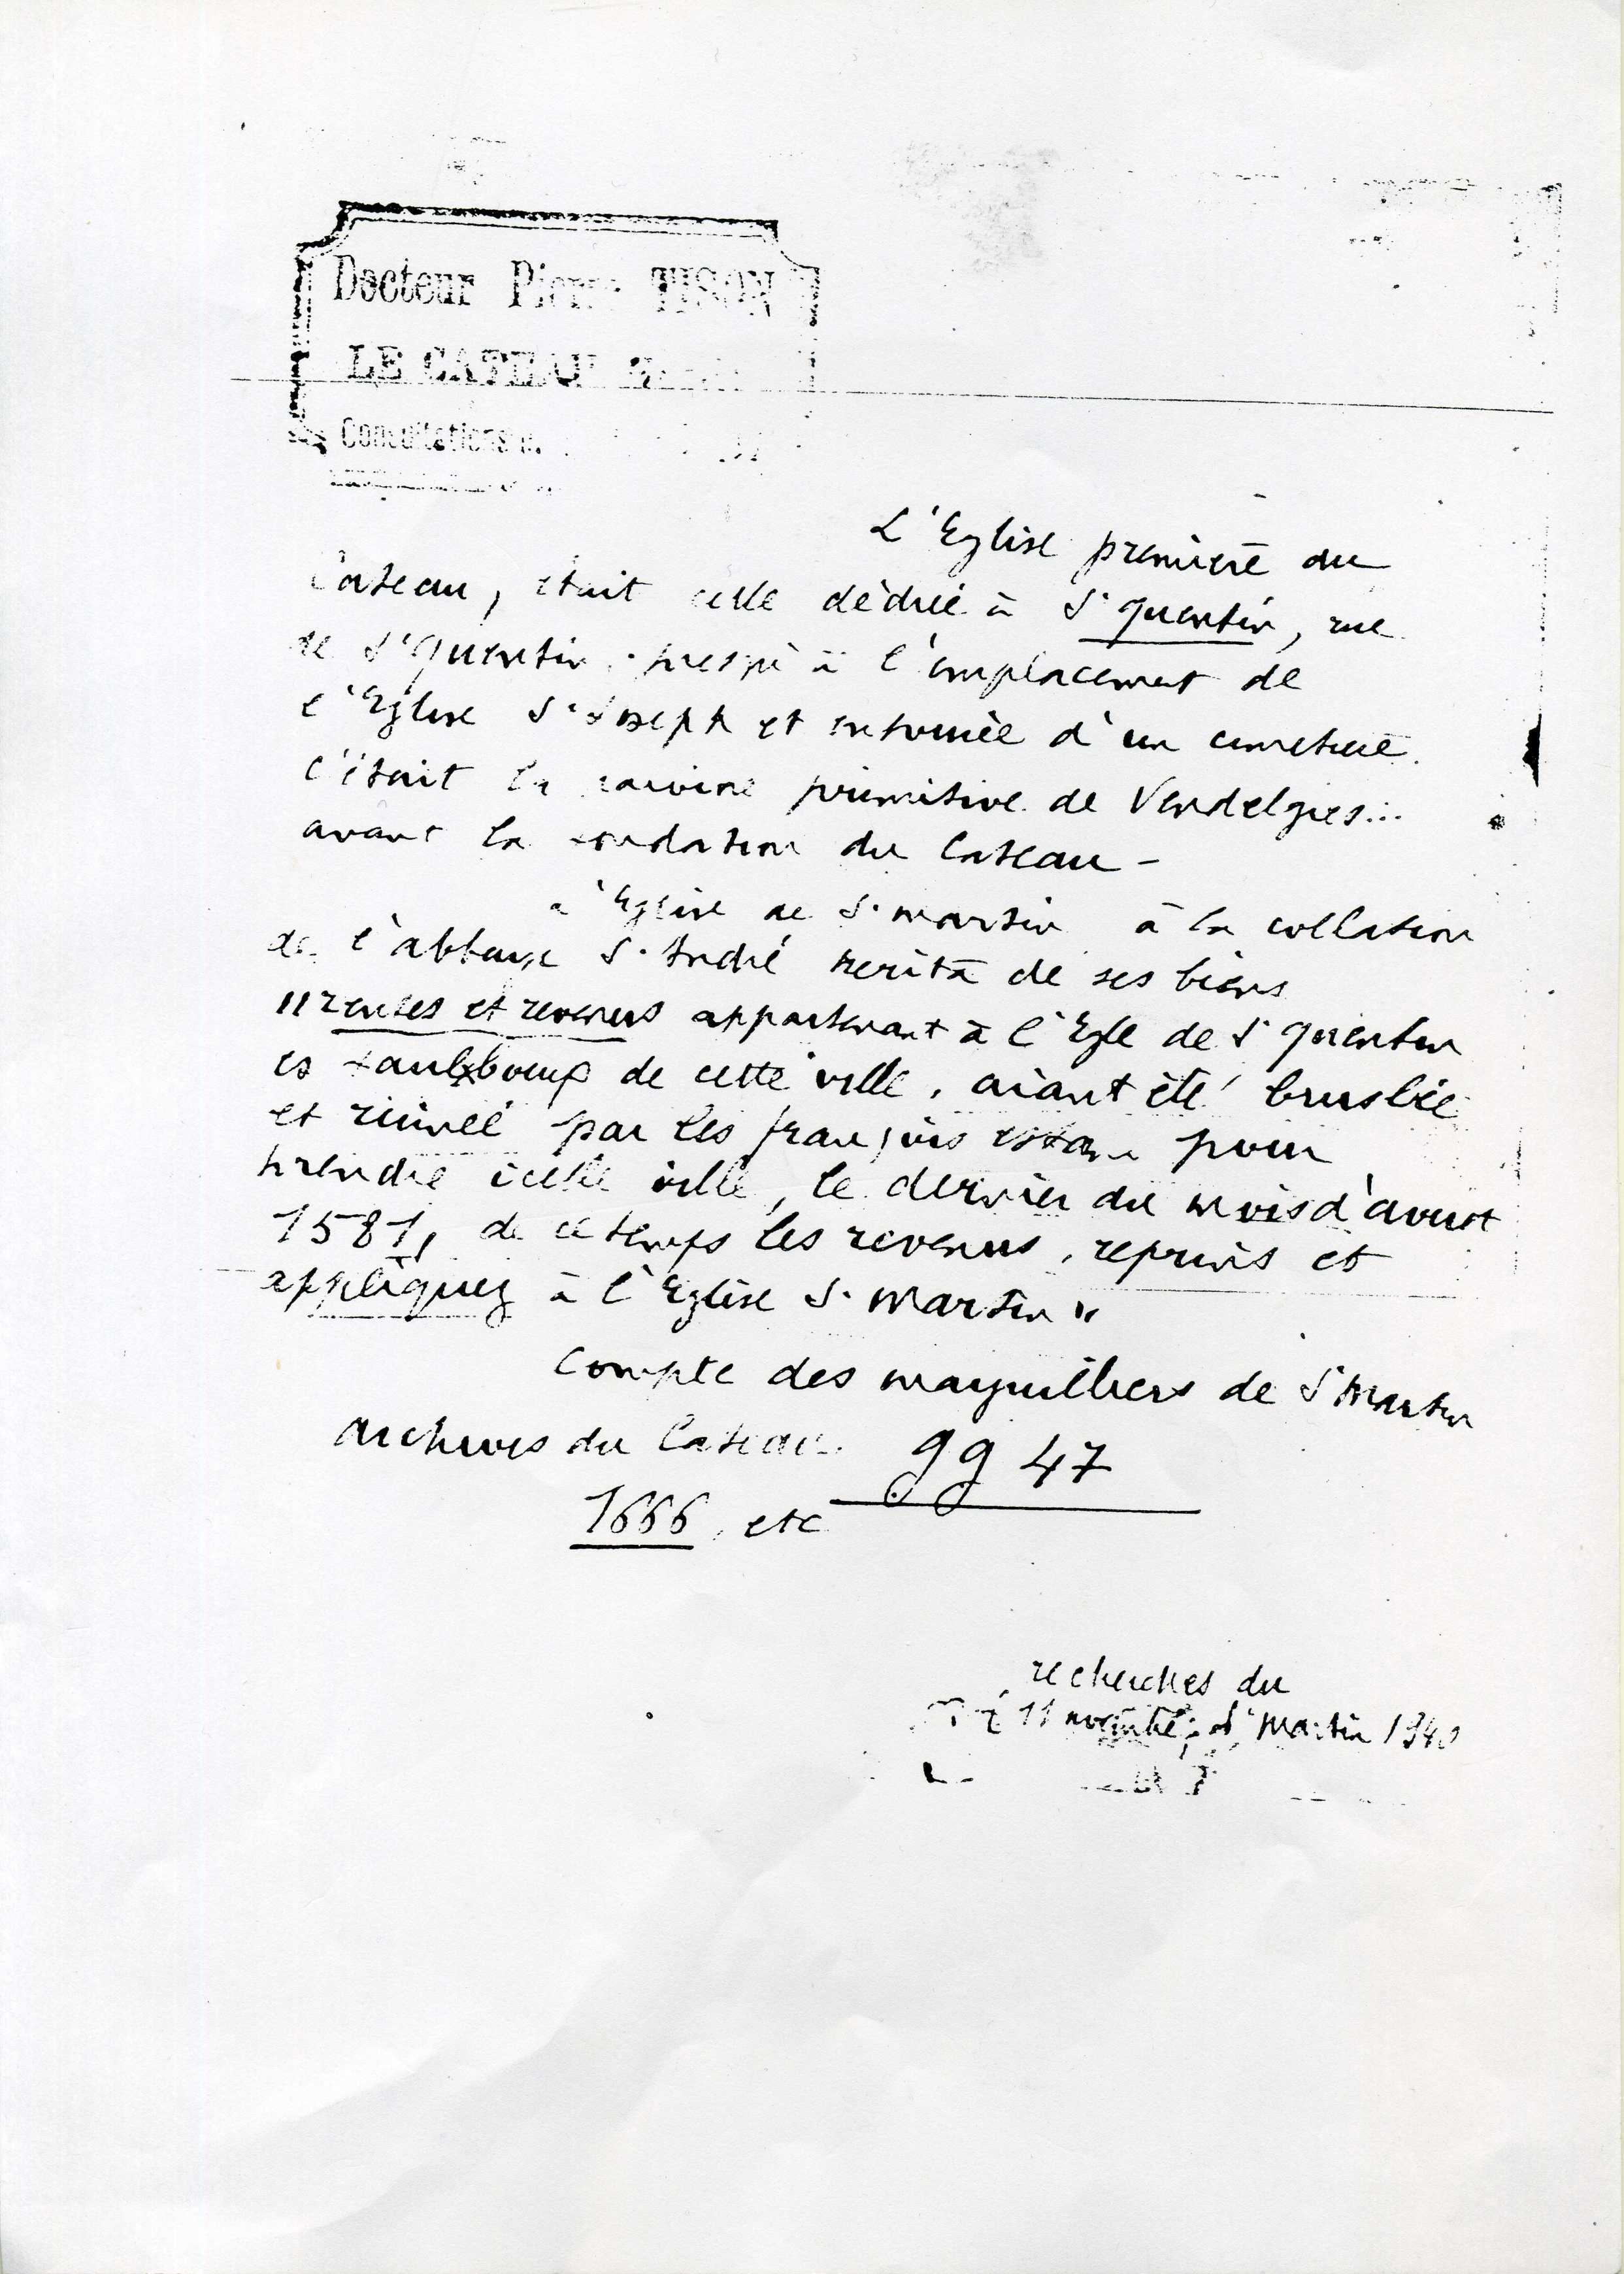 Docteur Pierre TISON
LE CATEAU
Consultations
L'Eglise première du
Cateau, était celle dédiée à St Quentin, rue
de St Quentin presqu'à l'emplacement de
l'Eglise St Joseph et entourée d'un cimetière.
C'était la paroisse primitive de Vendelgies...
avant la fondation du Cateau -
L'Eglise de St Martin à la collation
de l'abbaye St André hérita de ses biens
"rentes et revenus appartenant à l'Egle de St Quentin
es faulxbourg de cette ville, aiant été bruslée
et ruinée par les françois estans pour
prendre icelle ville, le dernier du mois d'avust
1581, de ce temps les revenus, reprins et
appliquez à l'Eglise St Martin"
Compte des marguilliers de St Martin
Archives du Cateau. gg 47
1666, etc
recherches du
11 novembre, St Martin 1940